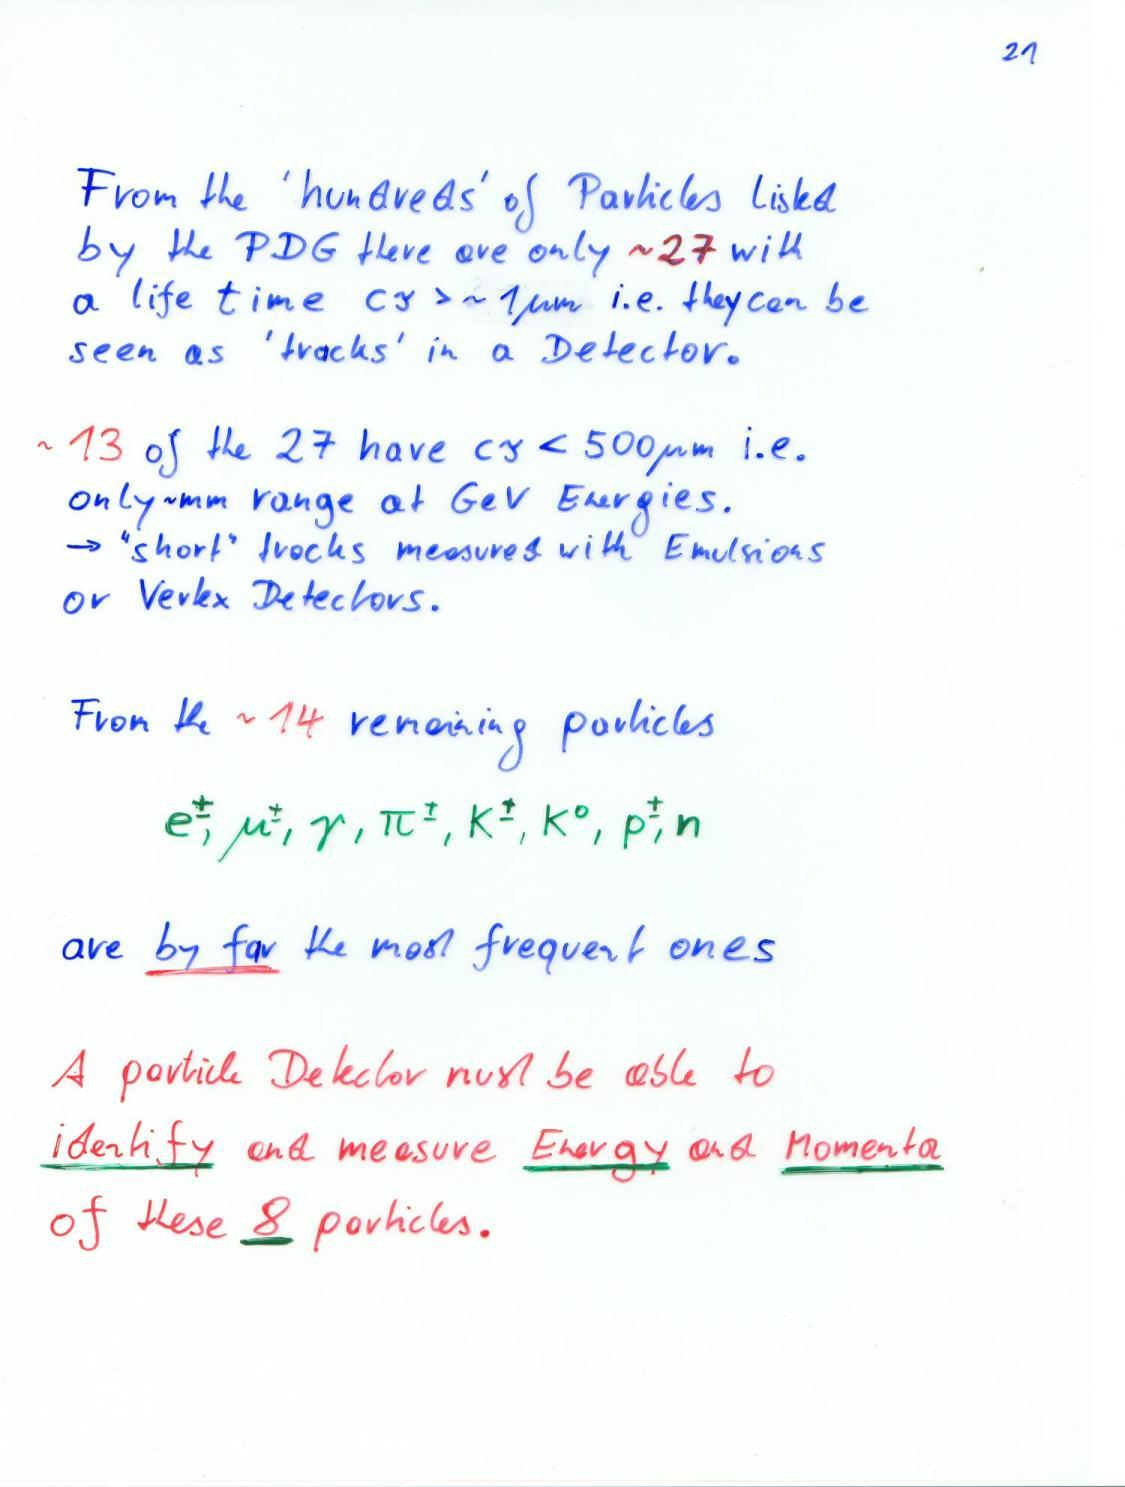 21
From the 'hundreds' of Particles listed
by the PDG there are only ~27 with
a life time cτ > ~ 1μm i.e. they can be
seen as 'tracks' in a Detector.
~ 13 of the 27 have cτ < 500μm i.e.
only ~mm range at GeV Energies.
→ "short" tracks measured with Emulsions
or Vertex Detectors.
From the ~ 14 remaining particles
e±, μ±, γ, π±, K±, K⁰, p±, n
are by far the most frequent ones
A particle Detector must be able to
identify and measure Energy and Momenta
of these 8 particles.